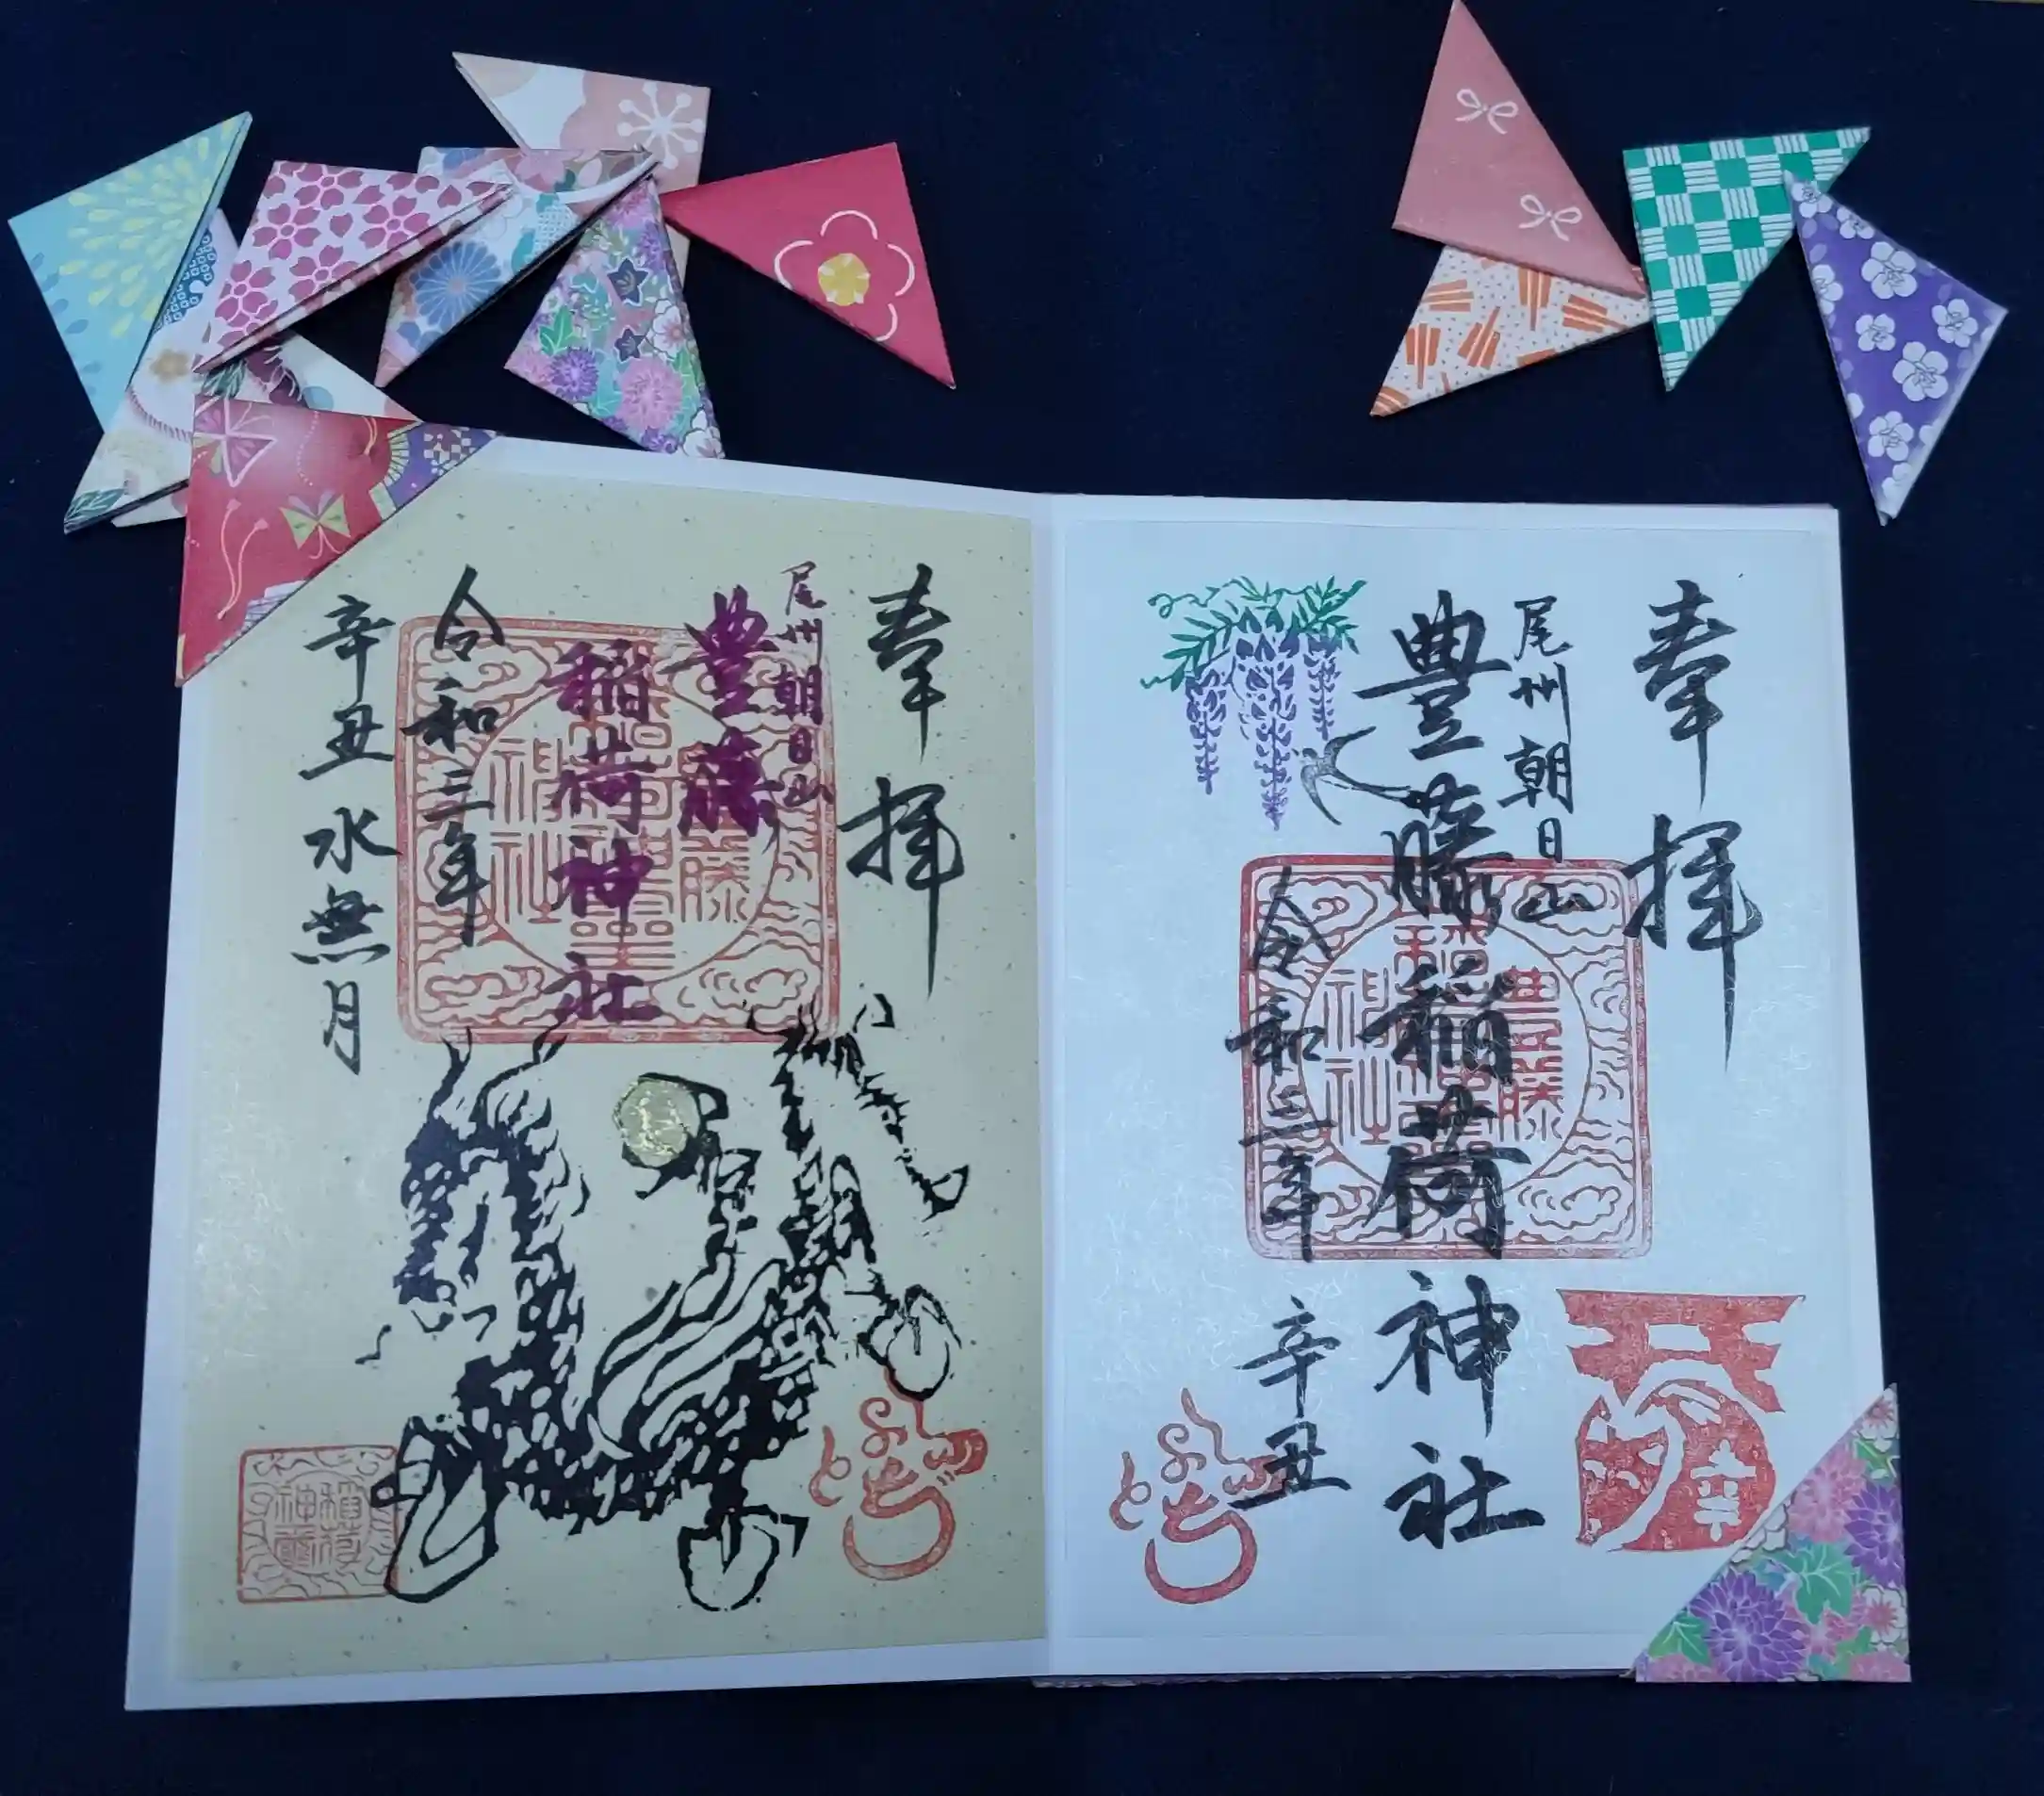 奉拝
尾州朝日山
豊藤稲荷神社
令和三年
辛丑
幸
奉拝
尾州朝日山
豊藤
稲荷神社
令和三年
辛丑水無月